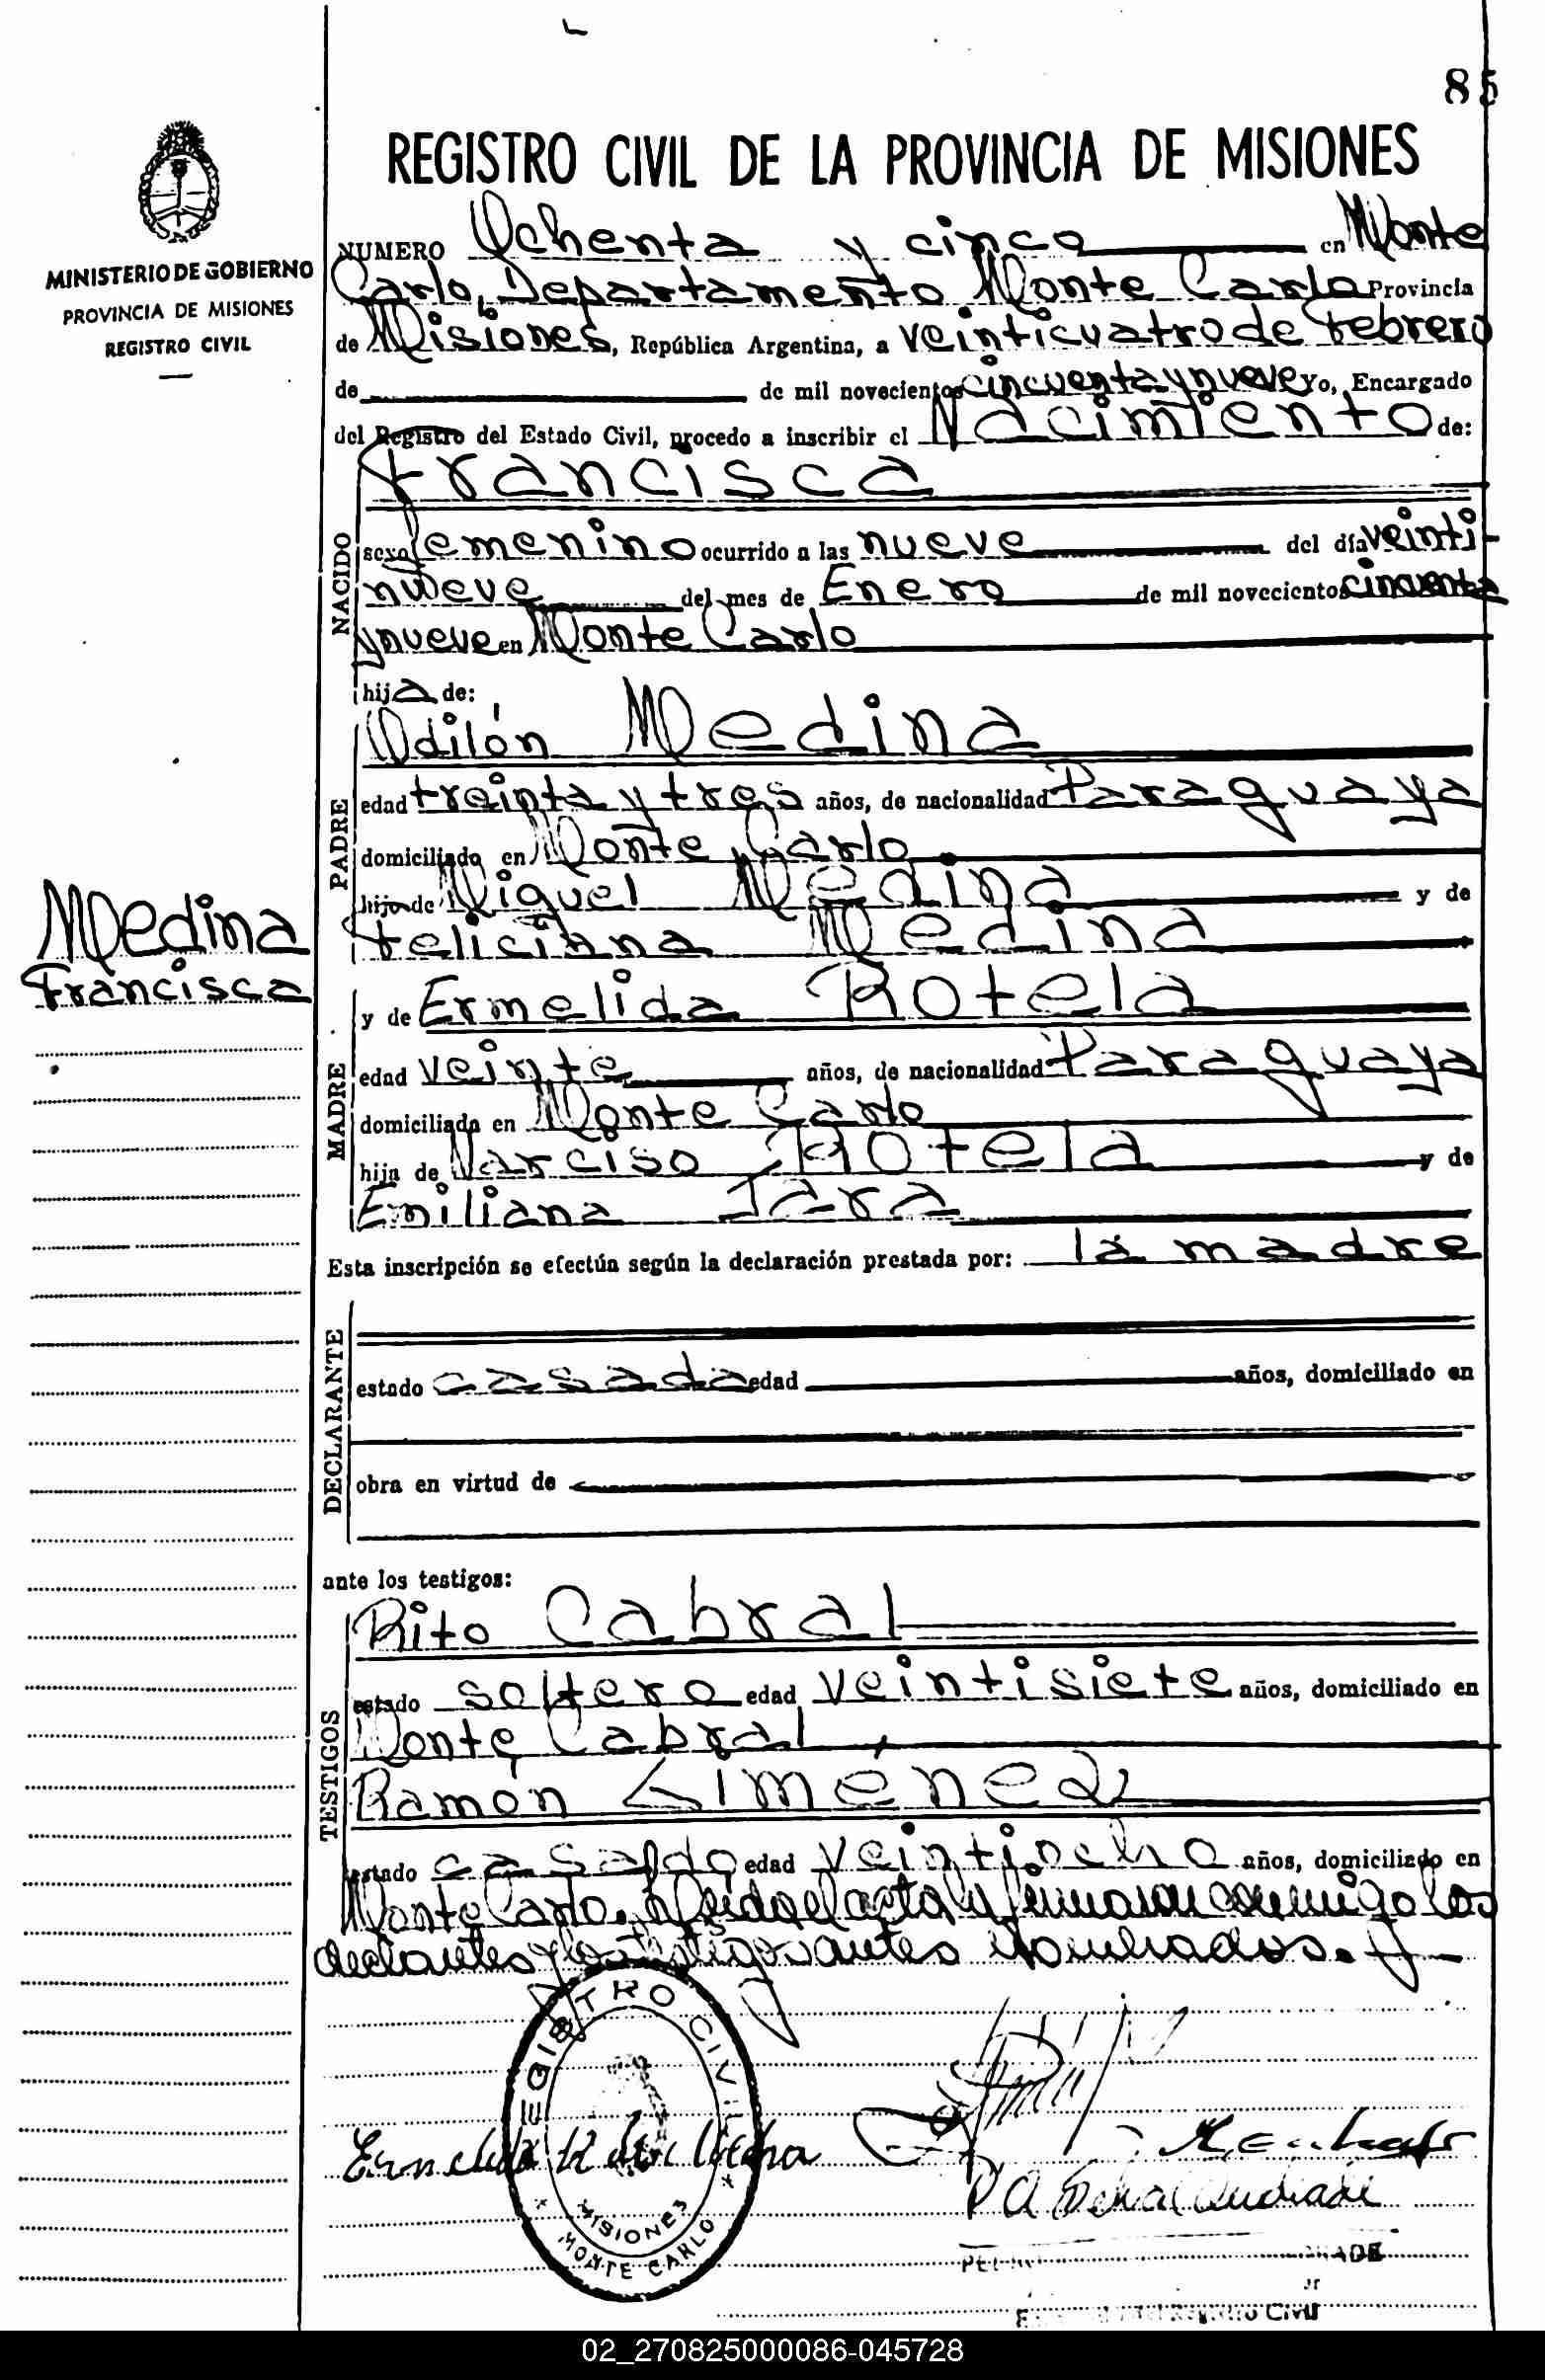 85
REGISTRO CIVIL DE LA PROVINCIA DE MISIONES
MINISTERIO DE GOBIERNO
PROVINCIA DE MISIONES
REGISTRO CIVIL
NUMERO Ochenta y cinco en Monte
Carlo, Departamento Monte Carlo Provincia
de Misiones, República Argentina, a veinticuatro de Febrero
de de mil novecientos cincuenta y nueve Yo, Encargado
del Registro del Estado Civil, procedo a inscribir el Nacimiento de:
NACIDO
Francisca
sexo femenino ocurrido a las nueve del día veinti-
nueve del mes de Enero de mil novecientos cincuenta
y nueve en Monte Carlo
hija de:
PADRE
Odilón Medina
edad treinta y tres años, de nacionalidad Paraguaya
domiciliado en Monte Carlo
hijo de Miguel Medina y de
Feliciana Medina
Medina
Francisca
MADRE
y de Ermelida Rotela
edad veinte años, de nacionalidad Paraguaya
domiciliada en Monte Carlo
hija de Narciso Rotela y de
Emiliana Jara
Esta inscripción se efectúa según la declaración prestada por: la madre
DECLARANTE
estado casada edad años, domiciliado en
obra en virtud de
ante los testigos:
TESTIGOS
Rito Cabral
estado soltero edad veintisiete años, domiciliado en
Monte Cabral,
Ramón Gimenez
estado casado edad veintiocho años, domiciliado en
Monte Carlo. Leída el acta y firmaron conmigo los
declantes y los testigos antes nombrados.
REGISTRO CIVIL
MISIONES
MONTE CARLO
Ermelida R de Medina
del Registro Civil
02_270825000086-045728